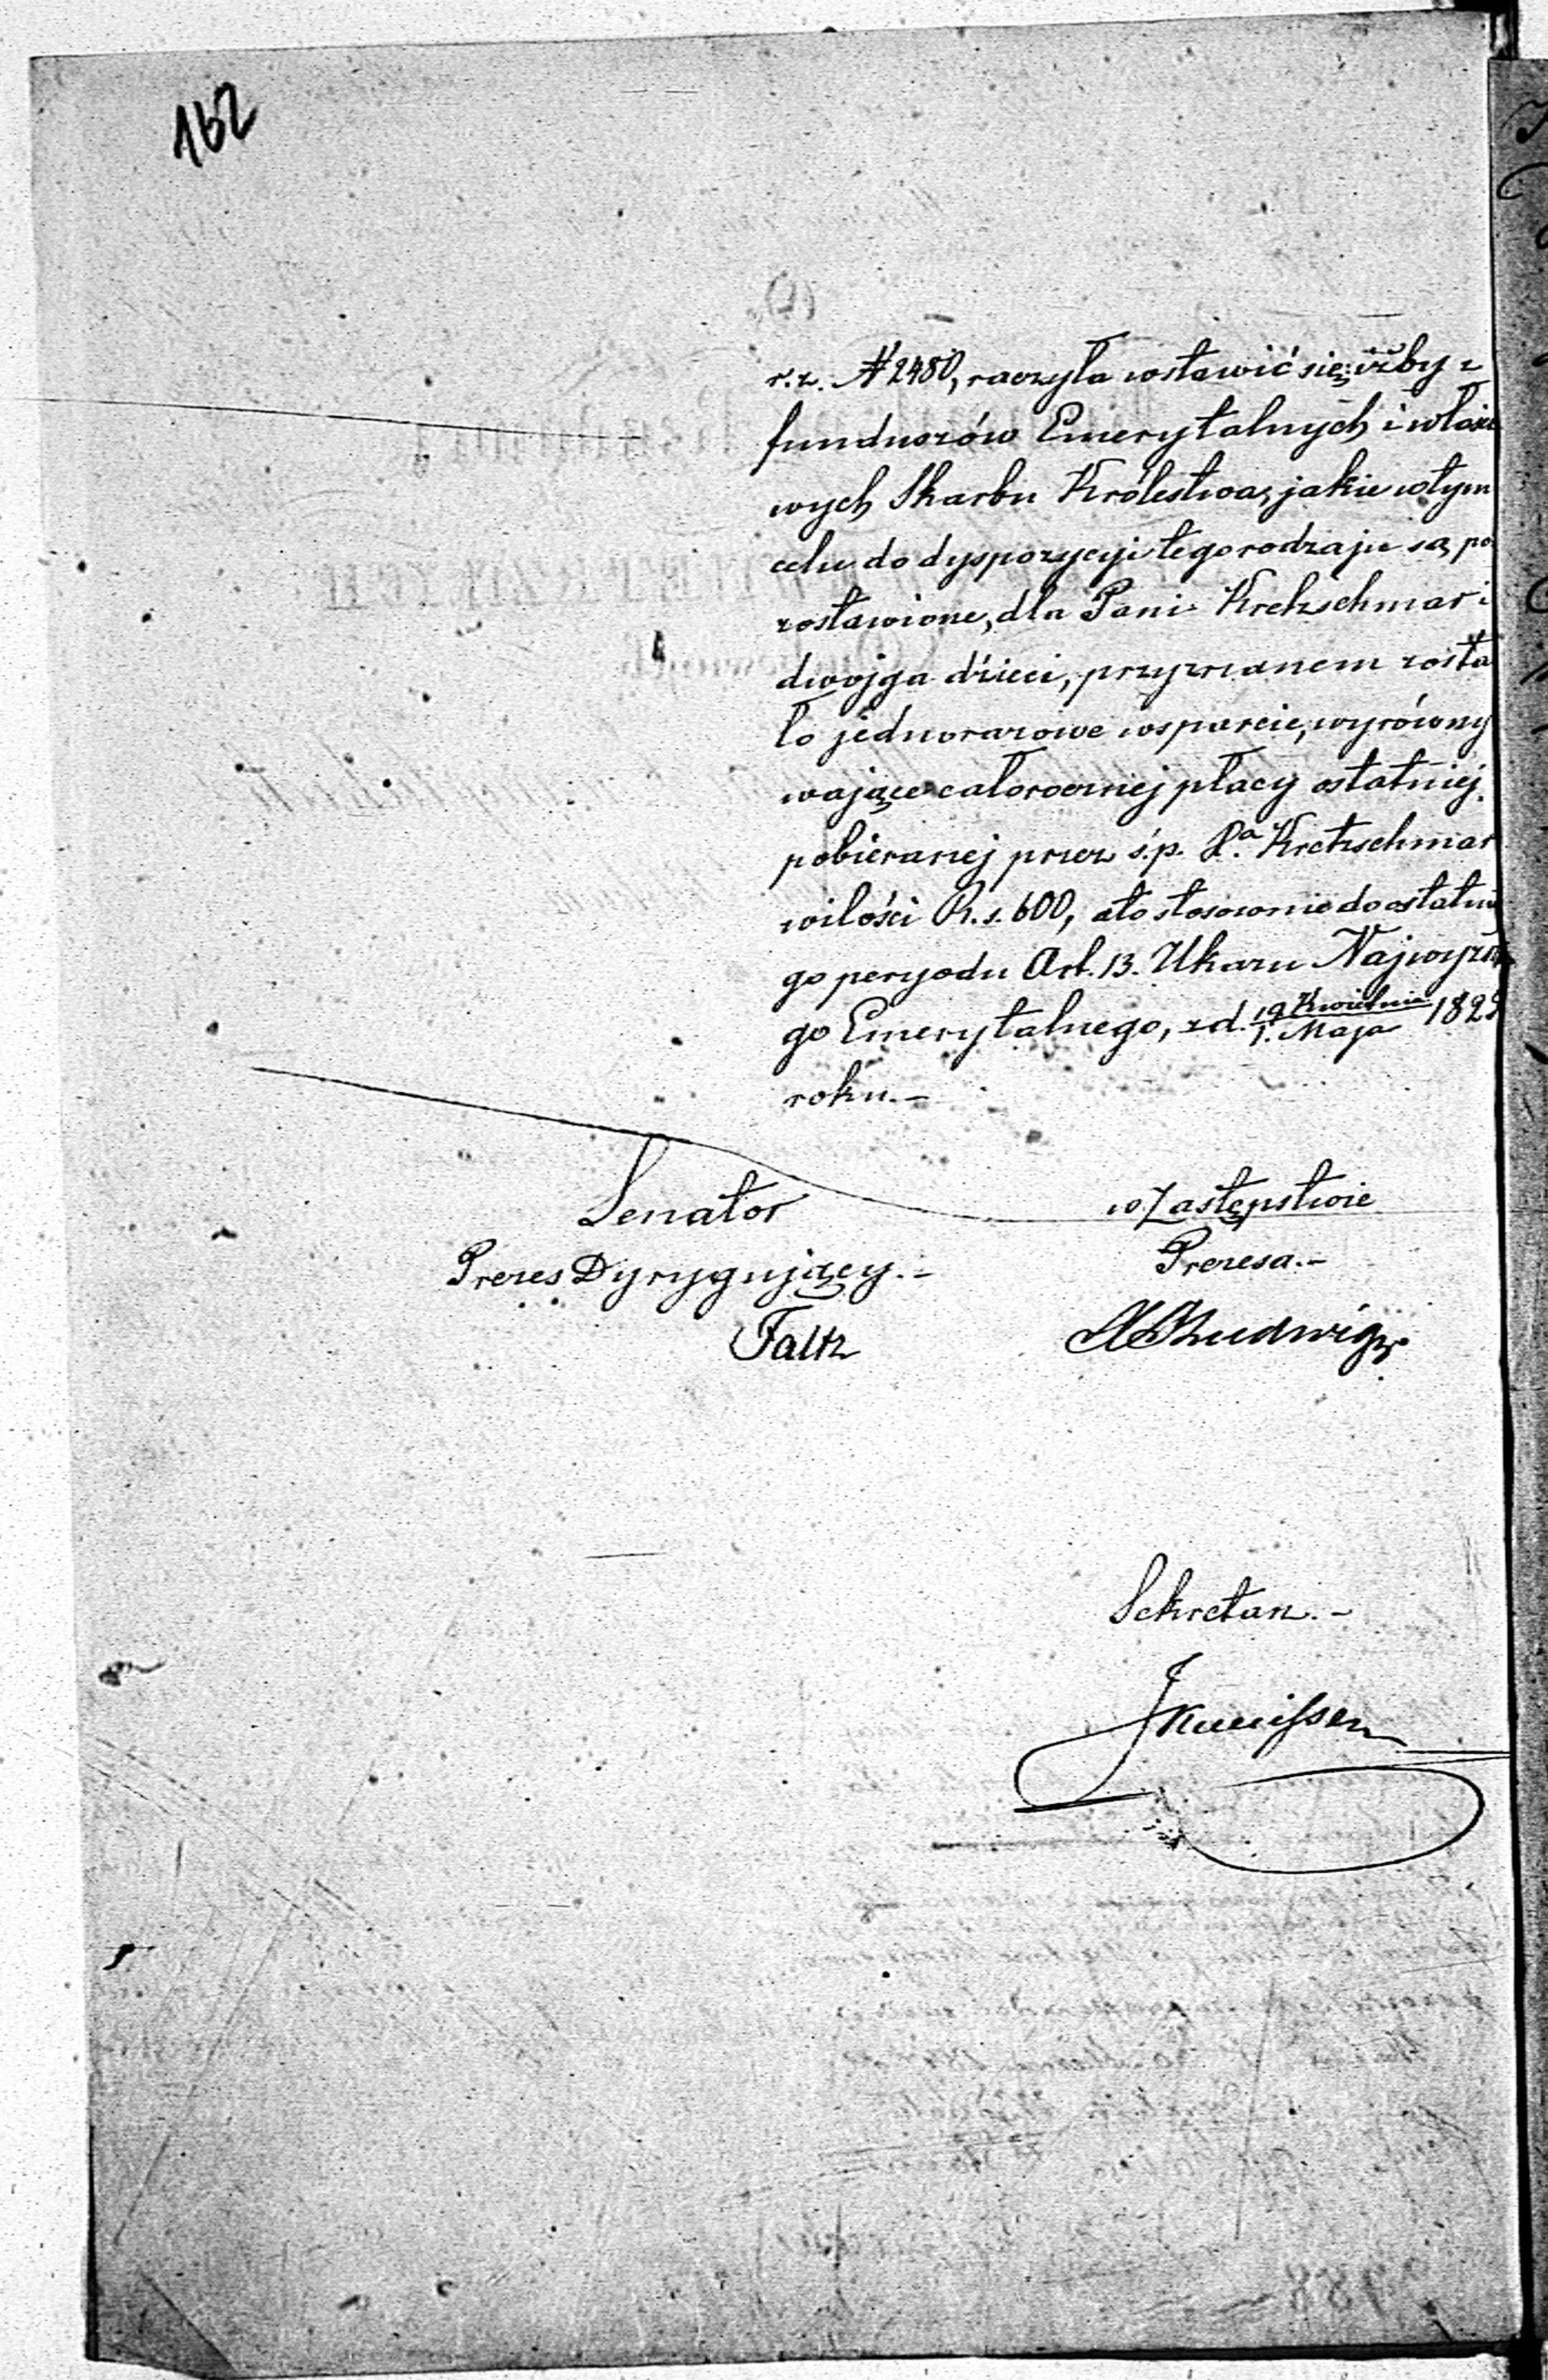 162
r.z. № 2480, raczyła wstawić się; iżby z
funduszów Emerytalnych i właści
wych Skarbu Królestwa, jakie w tym
celu do dyspozycyi tego rodzaju są po
zostawione, dla Pani Kretzschmar i
dwojga dzieci, przyznanem zosta
ło jednorazowe wsparcie, wyrówny
wające całorocznej płacy ostatniej
pobieranej przez ś.p. Pa. Kretzschmar
w ilości R.s. 600, a to stosownie do ostatnie
go peryodu Art. 13. Ukazu Najwyższe
go Emerytalnego, z d. 19 Kwietnia / 1. Maja 182
roku.-
Senator
Prezes Dyrygujący.-
Faltz
w Zastępstwie
Prezesa.-
Sekretarz.-